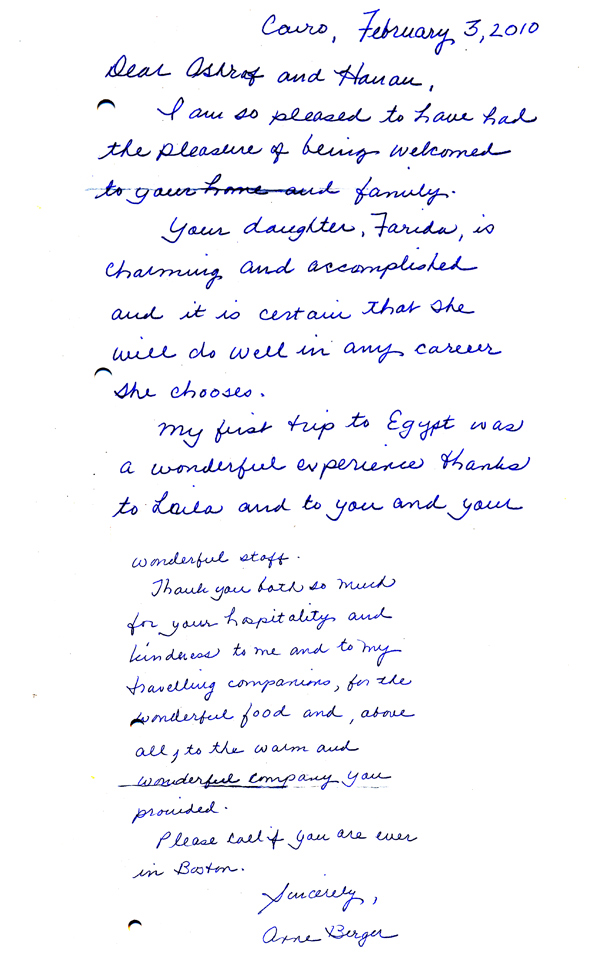 Cairo, February 3, 2010
Dear Ashraf and Hanan,
I am so pleased to have had
the pleasure of being welcomed
to your home and family.
Your daughter, Farida, is
charming and accomplished
and it is certain that she
will do well in any career
she chooses.
My first trip to Egypt was
a wonderful experience thanks
to Laila and to you and your
wonderful staff.
Thank you both so much
for your hospitality and
kindness to me and to my
travelling companions, for the
wonderful food and, above
all, to the warm and
wonderful company you
provided.
Please call if you are ever
in Boston.
Sincerely,
Anne Berger